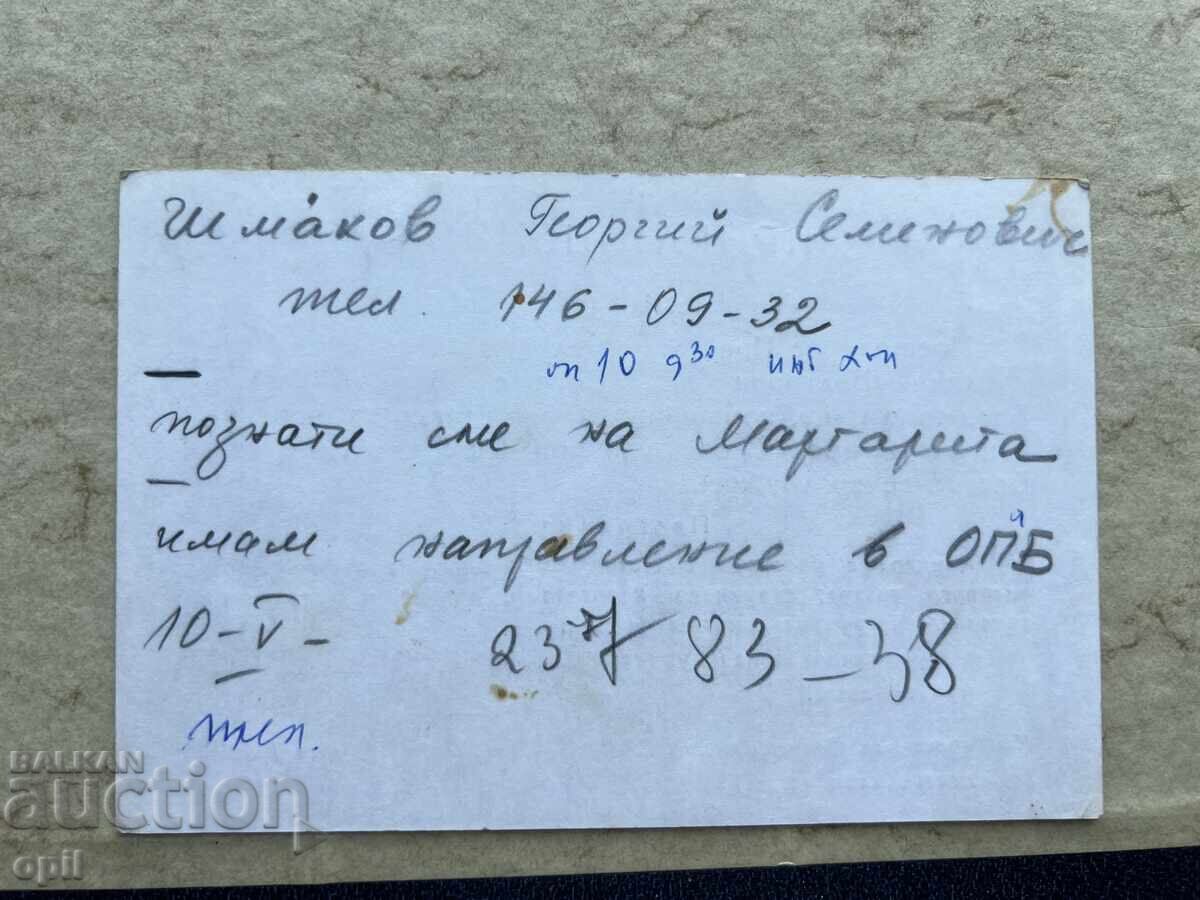 Шмаков Георгий Семенович
тел. 146-09-32
10 9³⁰
познати сме на Маргарита
имам направление в ОПБ
10-V- 237 83-38
BALKAN
auction
opil